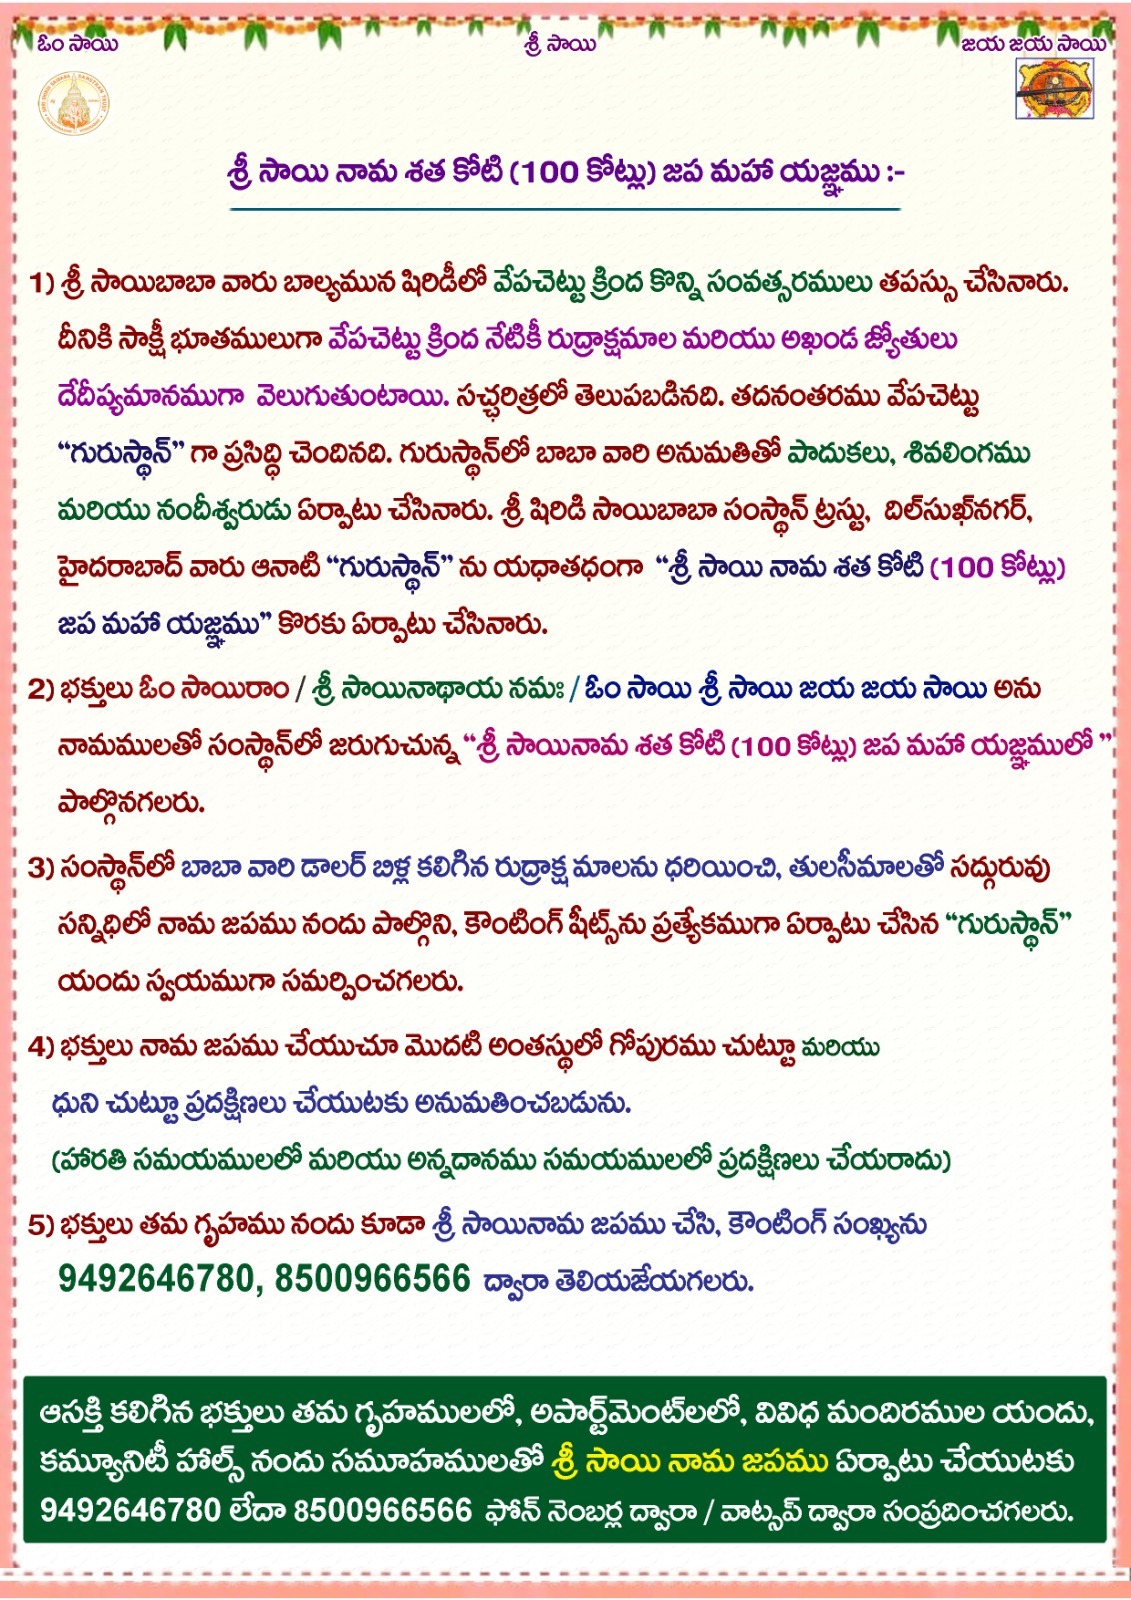 ఓం సాయి
శ్రీ సాయి
జయ జయ సాయి
శ్రీ సాయి నామ శత కోటి (100 కోట్లు) జప మహా యజ్ఞము :-
1) శ్రీ సాయిబాబా వారు బాల్యమున షిరిడీలో వేపచెట్టు క్రింద కొన్ని సంవత్సరములు తపస్సు చేసినారు.
దీనికి సాక్షీ భూతములుగా వేపచెట్టు క్రింద నేటికీ రుద్రాక్షమాల మరియు అఖండ జ్యోతులు
దేదీప్యమానముగా వెలుగుతుంటాయి. సచ్ఛరిత్రలో తెలుపబడినది. తదనంతరము వేపచెట్టు
“గురుస్థాన్” గా ప్రసిద్ధి చెందినది. గురుస్థాన్‌లో బాబా వారి అనుమతితో పాదుకలు, శివలింగము
మరియు నందీశ్వరుడు ఏర్పాటు చేసినారు. శ్రీ షిరిడి సాయిబాబా సంస్థాన్ ట్రస్టు, దిల్‌సుఖ్‌నగర్,
హైదరాబాద్ వారు ఆనాటి “గురుస్థాన్” ను యధాతధంగా “శ్రీ సాయి నామ శత కోటి (100 కోట్లు)
జప మహా యజ్ఞము” కొరకు ఏర్పాటు చేసినారు.
2) భక్తులు ఓం సాయిరాం / శ్రీ సాయినాథాయ నమః / ఓం సాయి శ్రీ సాయి జయ జయ సాయి అను
నామములతో సంస్థాన్‌లో జరుగుచున్న “శ్రీ సాయినామ శత కోటి (100 కోట్లు) జప మహా యజ్ఞములో ”
పాల్గొనగలరు.
3) సంస్థాన్‌లో బాబా వారి డాలర్ బిళ్ల కలిగిన రుద్రాక్ష మాలను ధరియించి, తులసీమాలతో సద్గురువు
సన్నిధిలో నామ జపము నందు పాల్గొని, కౌంటింగ్ షీట్స్‌ను ప్రత్యేకముగా ఏర్పాటు చేసిన “గురుస్థాన్”
యందు స్వయముగా సమర్పించగలరు.
4) భక్తులు నామ జపము చేయుచూ మొదటి అంతస్థులో గోపురము చుట్టూ మరియు
ధుని చుట్టూ ప్రదక్షిణలు చేయుటకు అనుమతించబడును.
(హారతి సమయములలో మరియు అన్నదానము సమయములలో ప్రదక్షిణలు చేయరాదు)
5) భక్తులు తమ గృహము నందు కూడా శ్రీ సాయినామ జపము చేసి, కౌంటింగ్ సంఖ్యను
9492646780, 8500966566 ద్వారా తెలియజేయగలరు.
ఆసక్తి కలిగిన భక్తులు తమ గృహములలో, అపార్ట్‌మెంట్‌లలో, వివిధ మందిరముల యందు,
కమ్యూనిటీ హాల్స్ నందు సమూహములతో శ్రీ సాయి నామ జపము ఏర్పాటు చేయుటకు
9492646780 లేదా 8500966566 ఫోన్ నెంబర్ల ద్వారా / వాట్సప్ ద్వారా సంప్రదించగలరు.